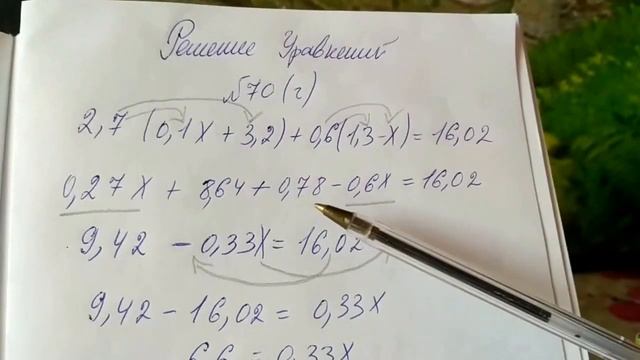 Решение Уравнений
№70 (г)
2,7 (0,1x + 3,2) + 0,6(1,3-x) = 16,02
0,27x + 8,64 + 0,78 - 0,6x = 16,02
9,42 - 0,33x = 16,02
9,42 - 16,02 = 0,33x
6,6 = 0,33x